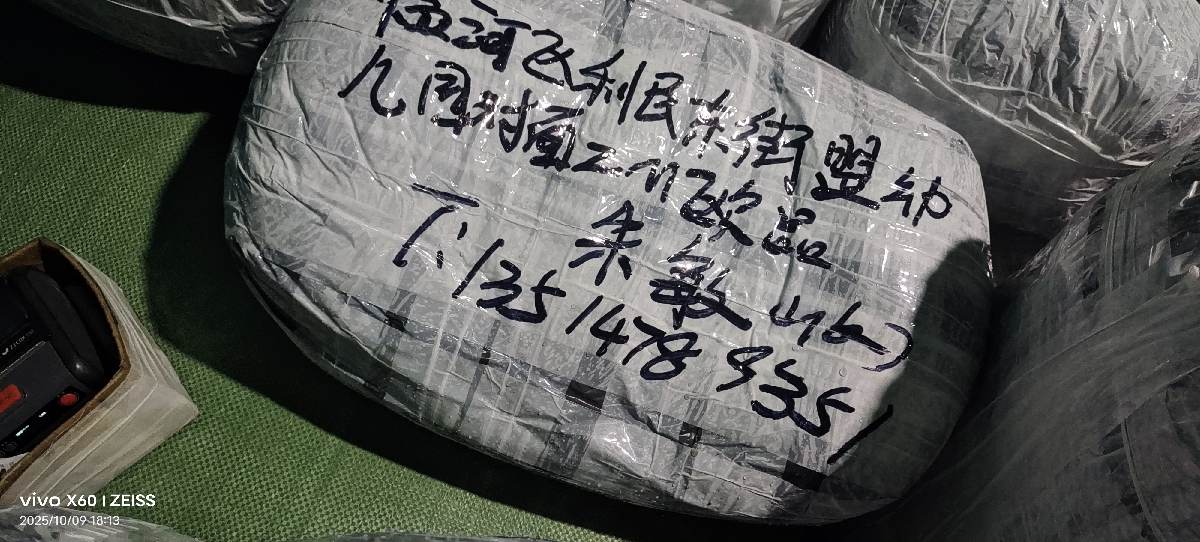 河飞利民东街盟幼
几国对面ZM饮品
朱敏(16)
T:13514789351
vivo X60 | ZEISS
2025/10/09 18:13